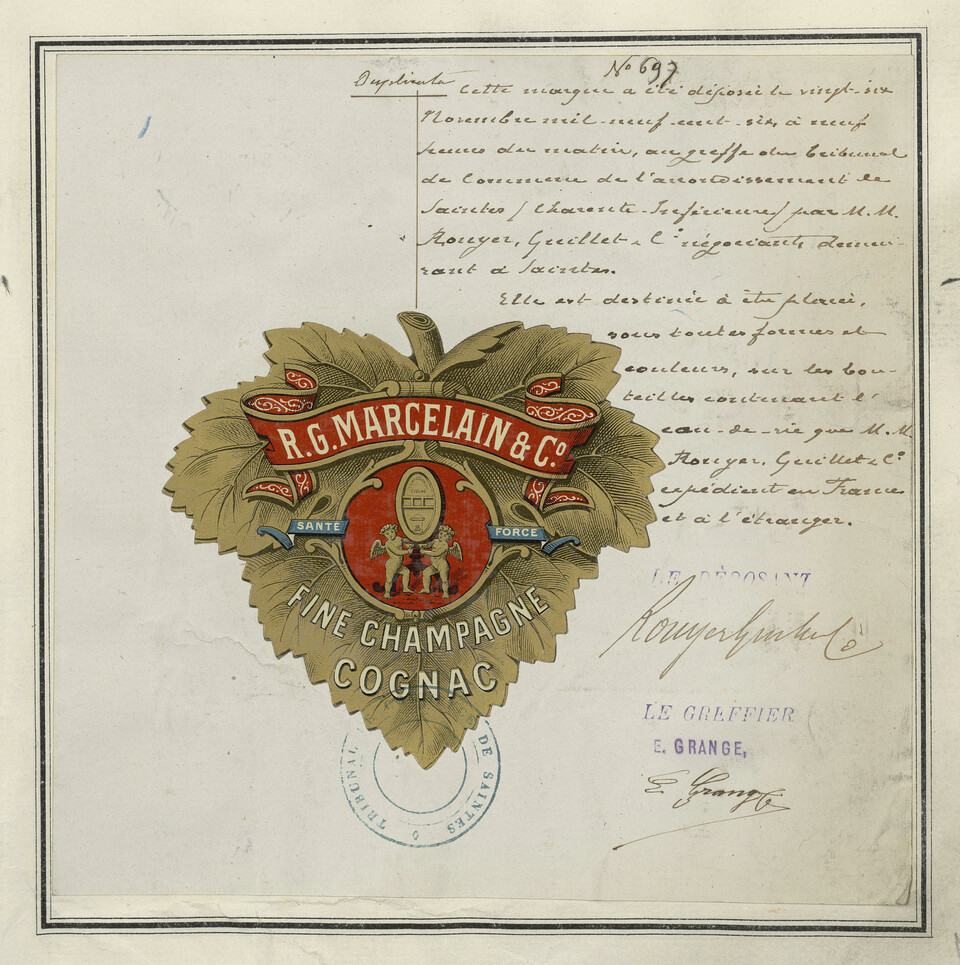 Duplicata
No 697
Cette marque a été déposée le vingt-six
Novembre mil-neuf-cent-six, à neuf
heures du matin, au greffe du Tribunal
de Commerce de l'arrondissement de
Saintes (Charente-Inférieure) par M.M.
Rouyer, Guillet & Cie négociants demeu-
rant à Saintes.
Elle est destinée à être placée,
sous toutes formes et
couleurs, sur les bou-
teilles contenant l'
eau-de-vie que M.M.
Rouyer, Guillet & Co
expédient en France
et à l'étranger.
R.G. MARCELAIN & Co.
SANTÉ
FORCE
FINE CHAMPAGNE
COGNAC
LE DÉPOSANT
Rouyer Guillet & Co
LE GREFFIER
E. GRANGE,
E. Grange
TRIBUNAL DE SAINTES